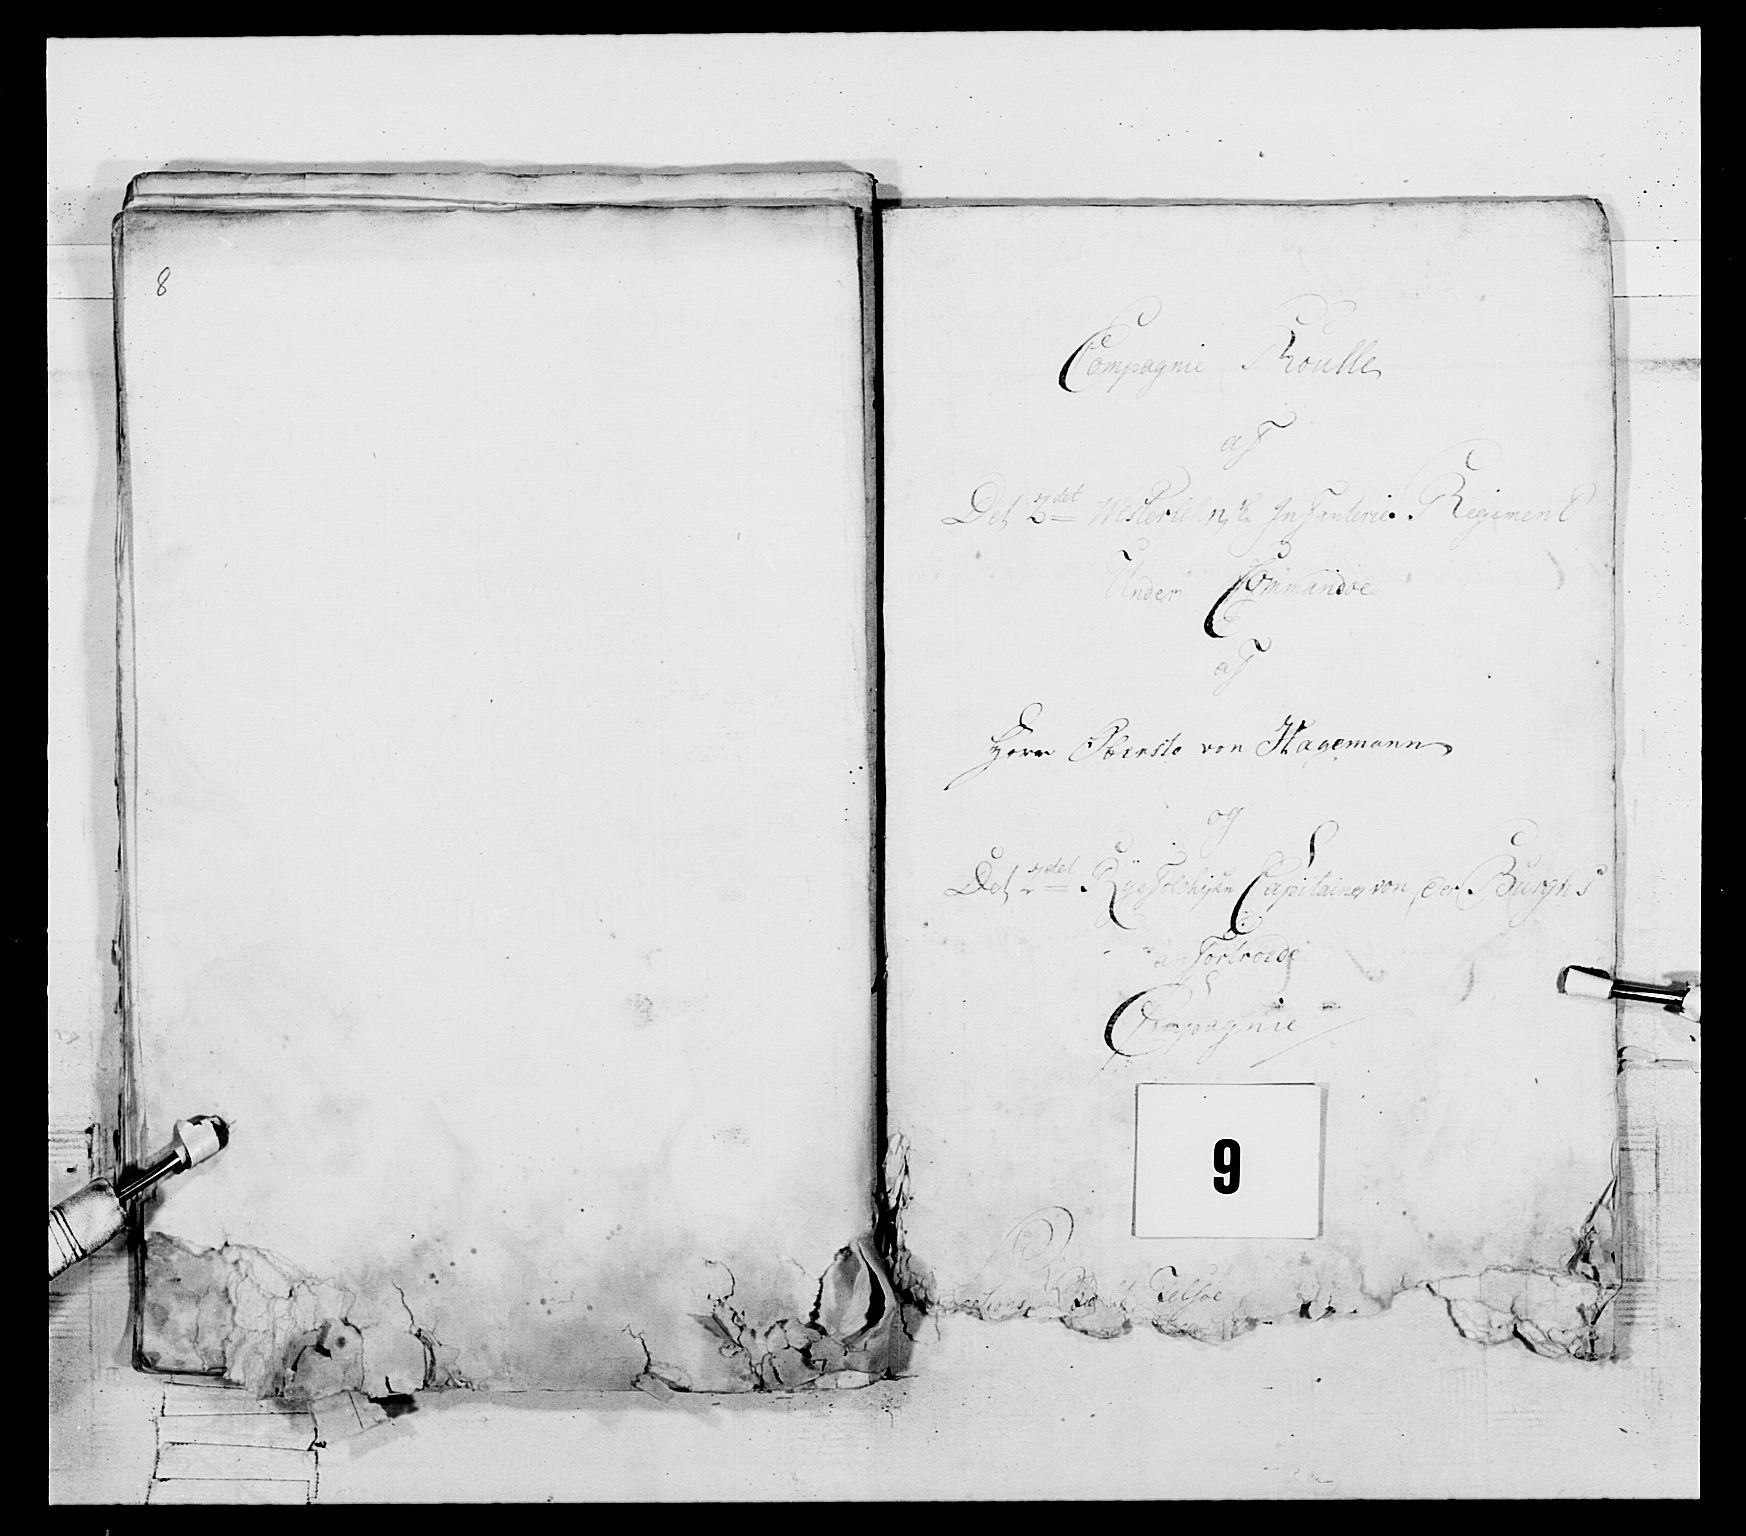 8
Compagnie Roulle
af
Det 2det Westerlehnske Infanterie Regiment
Under Commandoe
af
Herr Oberste von Hagemann
og
Det 2det Ryefylchiske Capitaine von der Burghs
anfortroede
Compagnie
9